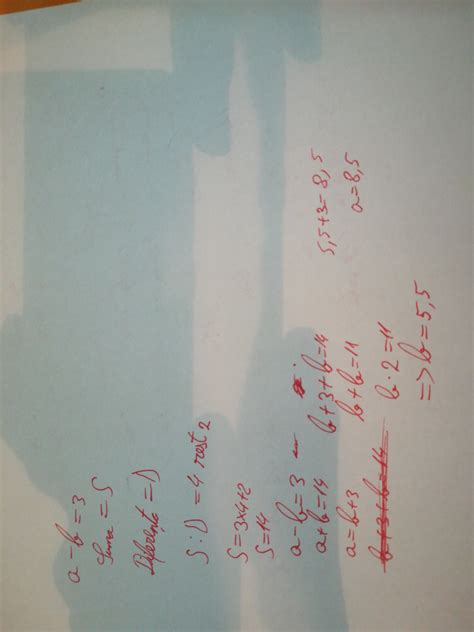 a - b = 3
Suma = S
Diferența = D
S : D = 4 rest 2
S = 3×4+2
S = 14
a - b = 3
a + b = 14
a = b+3
b+3+b=14
b+3+b=14
b+b=11
b·2=11
=> b=5,5
5,5+3=8,5
a=8,5